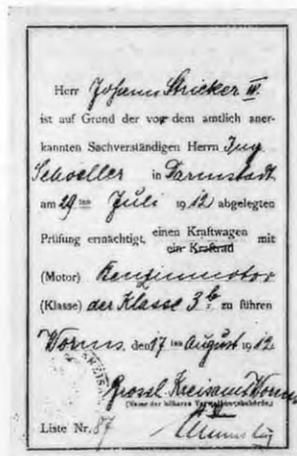 Herr Johann Stricker IV.
ist auf Grund der vor dem amtlich aner-
kannten Sachverständigen Herrn Ing
Schoeller in Darmstadt
am 29ten Juli 1912 abgelegten
Prüfung ermächtigt, einen Kraftwagen mit
ein Kraftrad
(Motor) Benzinmotor
(Klasse) der Klasse 3b zu führen
Worms, den 17ten August 1912
Grossh. Kreisamt Worms
(Name der höheren Verwaltungsbehörde.)
Liste Nr. 87